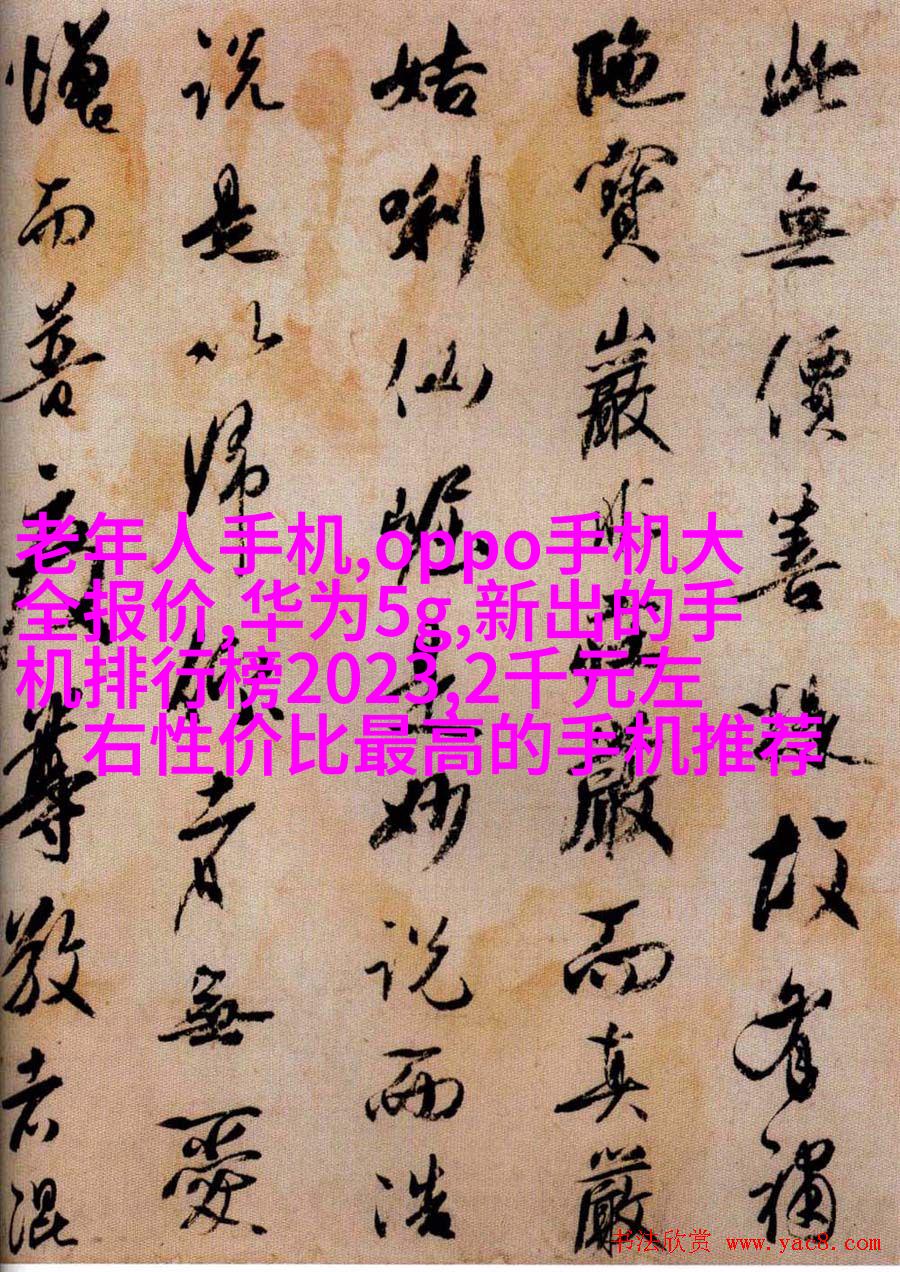 此無價善故有補
陁寶巖嚴而真嚴
姑唎仙妙说而浩
说是以歸者無愛
憎而普尊敬者混
老年人手机,oppo手机大
全报价,华为5g,新出的手
机排行榜2023,2千元左
右性价比最高的手机推荐
书法欣赏 www.yac8.com